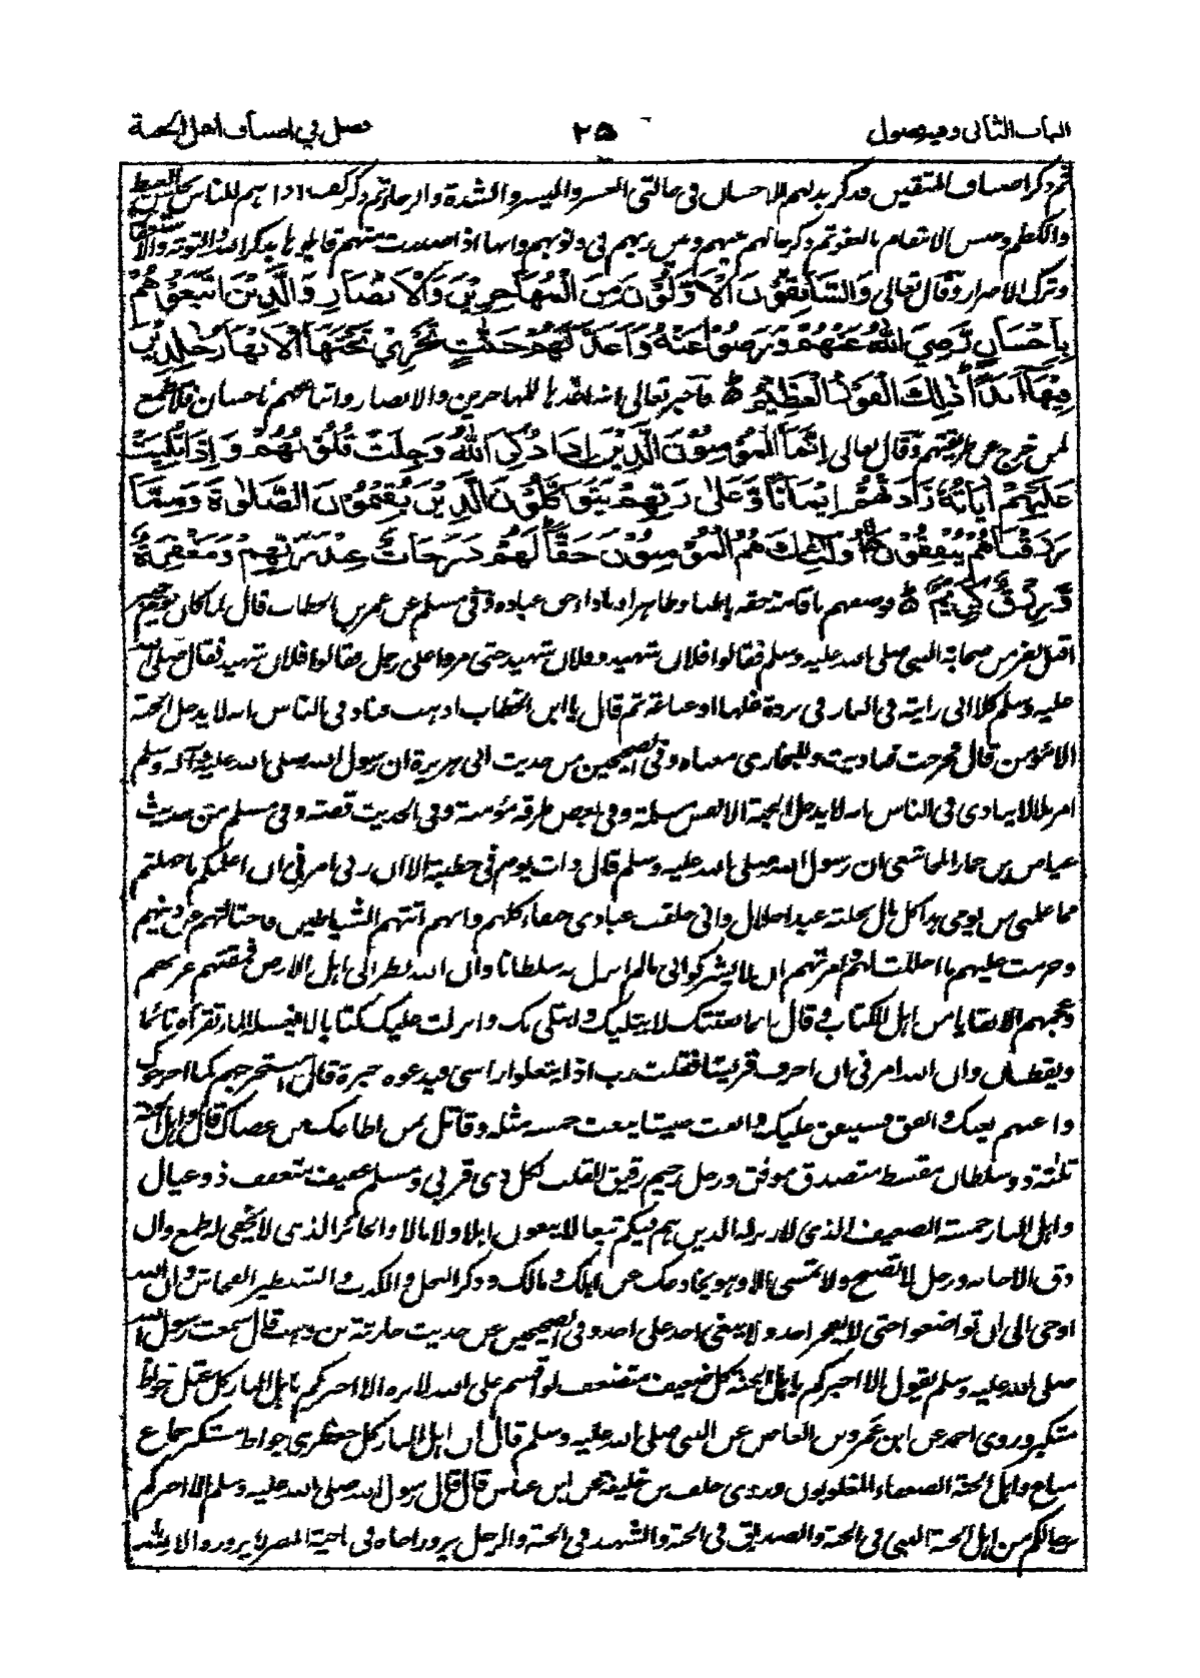 الباب الثانى وفيه فصول ٢٥ فصل في اصناف اهل الجنة
ثم ذكر اصناف المتقين فذكر بذلهم للاحسان فى حالتى العسر واليسر والشدة والرخاء ثم ذكر كف اذاهم للناس بحبس الغيظ
والكظم وحبس الانتقام بالعفو ثم ذكر حالهم بينهم وبين ربهم فى ذنوبهم وانها اذا صدرت منهم قابلوها بذكر الله والتوبة والاستغفار
وترك الاصرار وقال تعالى وَالسَّابِقُوْنَ الْاَوَّلُوْنَ مِنَ الْمُهَاجِرِيْنَ وَالْاَنْصَارِ وَالَّذِيْنَ اتَّبَعُوْهُمْ
بِاِحْسَانٍ رَّضِيَ اللّٰهُ عَنْهُمْ وَرَضُوْا عَنْهُ وَاَعَدَّ لَهُمْ جَنّٰتٍ تَجْرِيْ تَحْتَهَا الْاَنْهَارُ خٰلِدِيْنَ
فِيْهَا اَبَدًا ذٰلِكَ الْفَوْزُ الْعَظِيْمُ فاخبر تعالى انه اعدها للمهاجرين والانصار واتباعهم باحسان فلا مطمع
لمن خرج عن طريقتهم وقال تعالى اِنَّمَا الْمُؤْمِنُوْنَ الَّذِيْنَ اِذَا ذُكِرَ اللّٰهُ وَجِلَتْ قُلُوْبُهُمْ وَاِذَا تُلِيَتْ
عَلَيْهِمْ اٰيَاتُهٗ زَادَتْهُمْ اِيْمَانًا وَّعَلٰى رَبِّهِمْ يَتَوَكَّلُوْنَ الَّذِيْنَ يُقِيْمُوْنَ الصَّلٰوةَ وَمِمَّا
رَزَقْنَاهُمْ يُنْفِقُوْنَ اُولٰئِكَ هُمُ الْمُؤْمِنُوْنَ حَقًّا لَهُمْ دَرَجَاتٌ عِنْدَ رَبِّهِمْ وَمَغْفِرَةٌ
وَّرِزْقٌ كَرِيْمٌ فوصفهم باقامة حقه باطنا وظاهرا وباداء حق عباده وفى مسلم عن عمر بن الخطاب قال لما كان يوم خيبر
اقبل نفر من صحابة النبى صلى الله عليه وسلم فقالوا فلان شهيد وفلان شهيد حتى مروا على رجل فقالوا فلان شهيد فقال صلى الله
عليه وسلم كلا انى رايته فى النار فى بردة غلها او عباءة ثم قال يا ابن الخطاب اذهب فناد فى الناس انه لا يدخل الجنة
الا المؤمنون قال فخرجت فناديت وللبخارى معناه وفى الصحيحين من حديث ابى هريرة ان رسول الله صلى الله عليه وآله وسلم
امر بلالا ينادى فى الناس انه لا يدخل الجنة الا نفس مسلمة وفى بعض طرقه مؤمنة وفى الحديث قصة وفى مسلم من حديث
عياض بن حمار المجاشعى ان رسول الله صلى الله عليه وسلم قال ذات يوم فى خطبته الا ان ربى امرنى ان اعلمكم ما جهلتم
مما علمنى من يومى هذا كل مال نحلته عبدا حلال وانى خلقت عبادى حنفاء كلهم وانهم اتتهم الشياطين فاجتالتهم عن دينهم
وحرمت عليهم ما احللت لهم وامرتهم ان لا يشركوا بى مالم انزل به سلطانا وان الله نظر الى اهل الارض فمقتهم عربهم
وعجمهم الا بقايا من اهل الكتاب وقال انما بعثتك لابتليك وابتلى بك وانزلت عليك كتابا لا يغسله الماء تقرأه نائما
ويقظان وان الله امرنى ان احرق قريشا فقلت رب اذا يثلغوا راسى فيدعوه خبزة قال استخرجهم كما اخرجوك
واغزهم نغزك وانفق فسينفق عليك وابعث جيشا نبعث خمسة مثله وقاتل بمن اطاعك من عصاك قال واهل الجنة
ثلثة ذو سلطان مقسط متصدق موفق ورجل رحيم رقيق القلب لكل ذى قربى ومسلم عفيف متعفف ذو عيال
واهل النار خمسة الضعيف الذى لا زبر له الذين هم فيكم تبعا لا يبغون اهلا ولا مالا والخائن الذى لا يخفى له طمع وان
دق الا خانه ورجل لا يصبح ولا يمسى الا وهو يخادعك عن اهلك ومالك وذكر البخل والكذب والشنظير الفحاش وان الله
اوحى الى ان تواضعوا حتى لا يفخر احد ولا يبغى احد على احد وفى الصحيحين عن حديث حارثة بن وهب قال سمعت رسول الله
صلى الله عليه وسلم يقول الا اخبركم باهل الجنة كل ضعيف متضعف لو اقسم على الله لابره الا اخبركم باهل النار كل عتل جواظ
متكبر وروى احمد عن ابن عمرو بن العاص عن النبى صلى الله عليه وسلم قال ان اهل النار كل جعظرى جواظ مستكبر جماع
مناع واهل الجنة الضعفاء المغلوبون وروى خلف بن خليفة عن ابن عباس قال قال رسول الله صلى الله عليه وسلم الا اخبركم
برجالكم من اهل الجنة النبى فى الجنة والصديق فى الجنة والشهيد فى الجنة والرجل يزور اخاه فى ناحية المصر لا يزوره الا لله